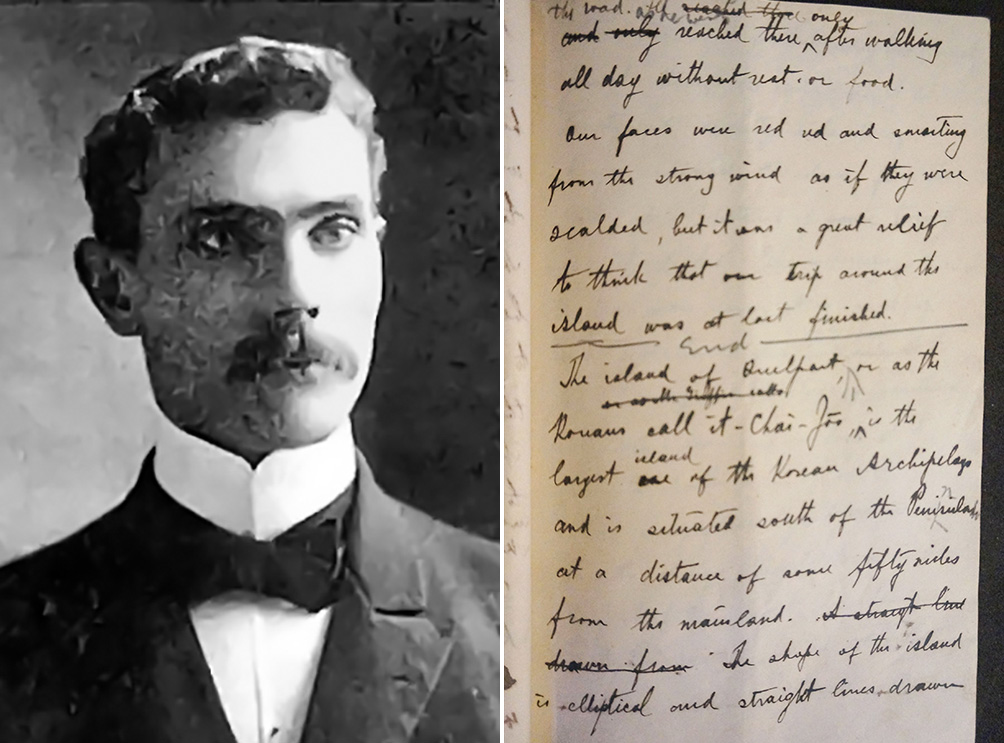 the road. and he
and only reached there, only after walking
all day without rest or food.
Our faces were red and smarting
from the strong wind as if they were
scalded, but it was a great relief
to think that our trip around the
island was at last finished.
End
The island of Quelpart, or as the
Koreans call it - Chai-Joo, is the
island
largest one of the Korean Archipelago
and is situated south of the Peninsula
at a distance of some fifty miles
from the mainland. A straigt line
drawn from The shape of the island
is elliptical and straight lines drawn